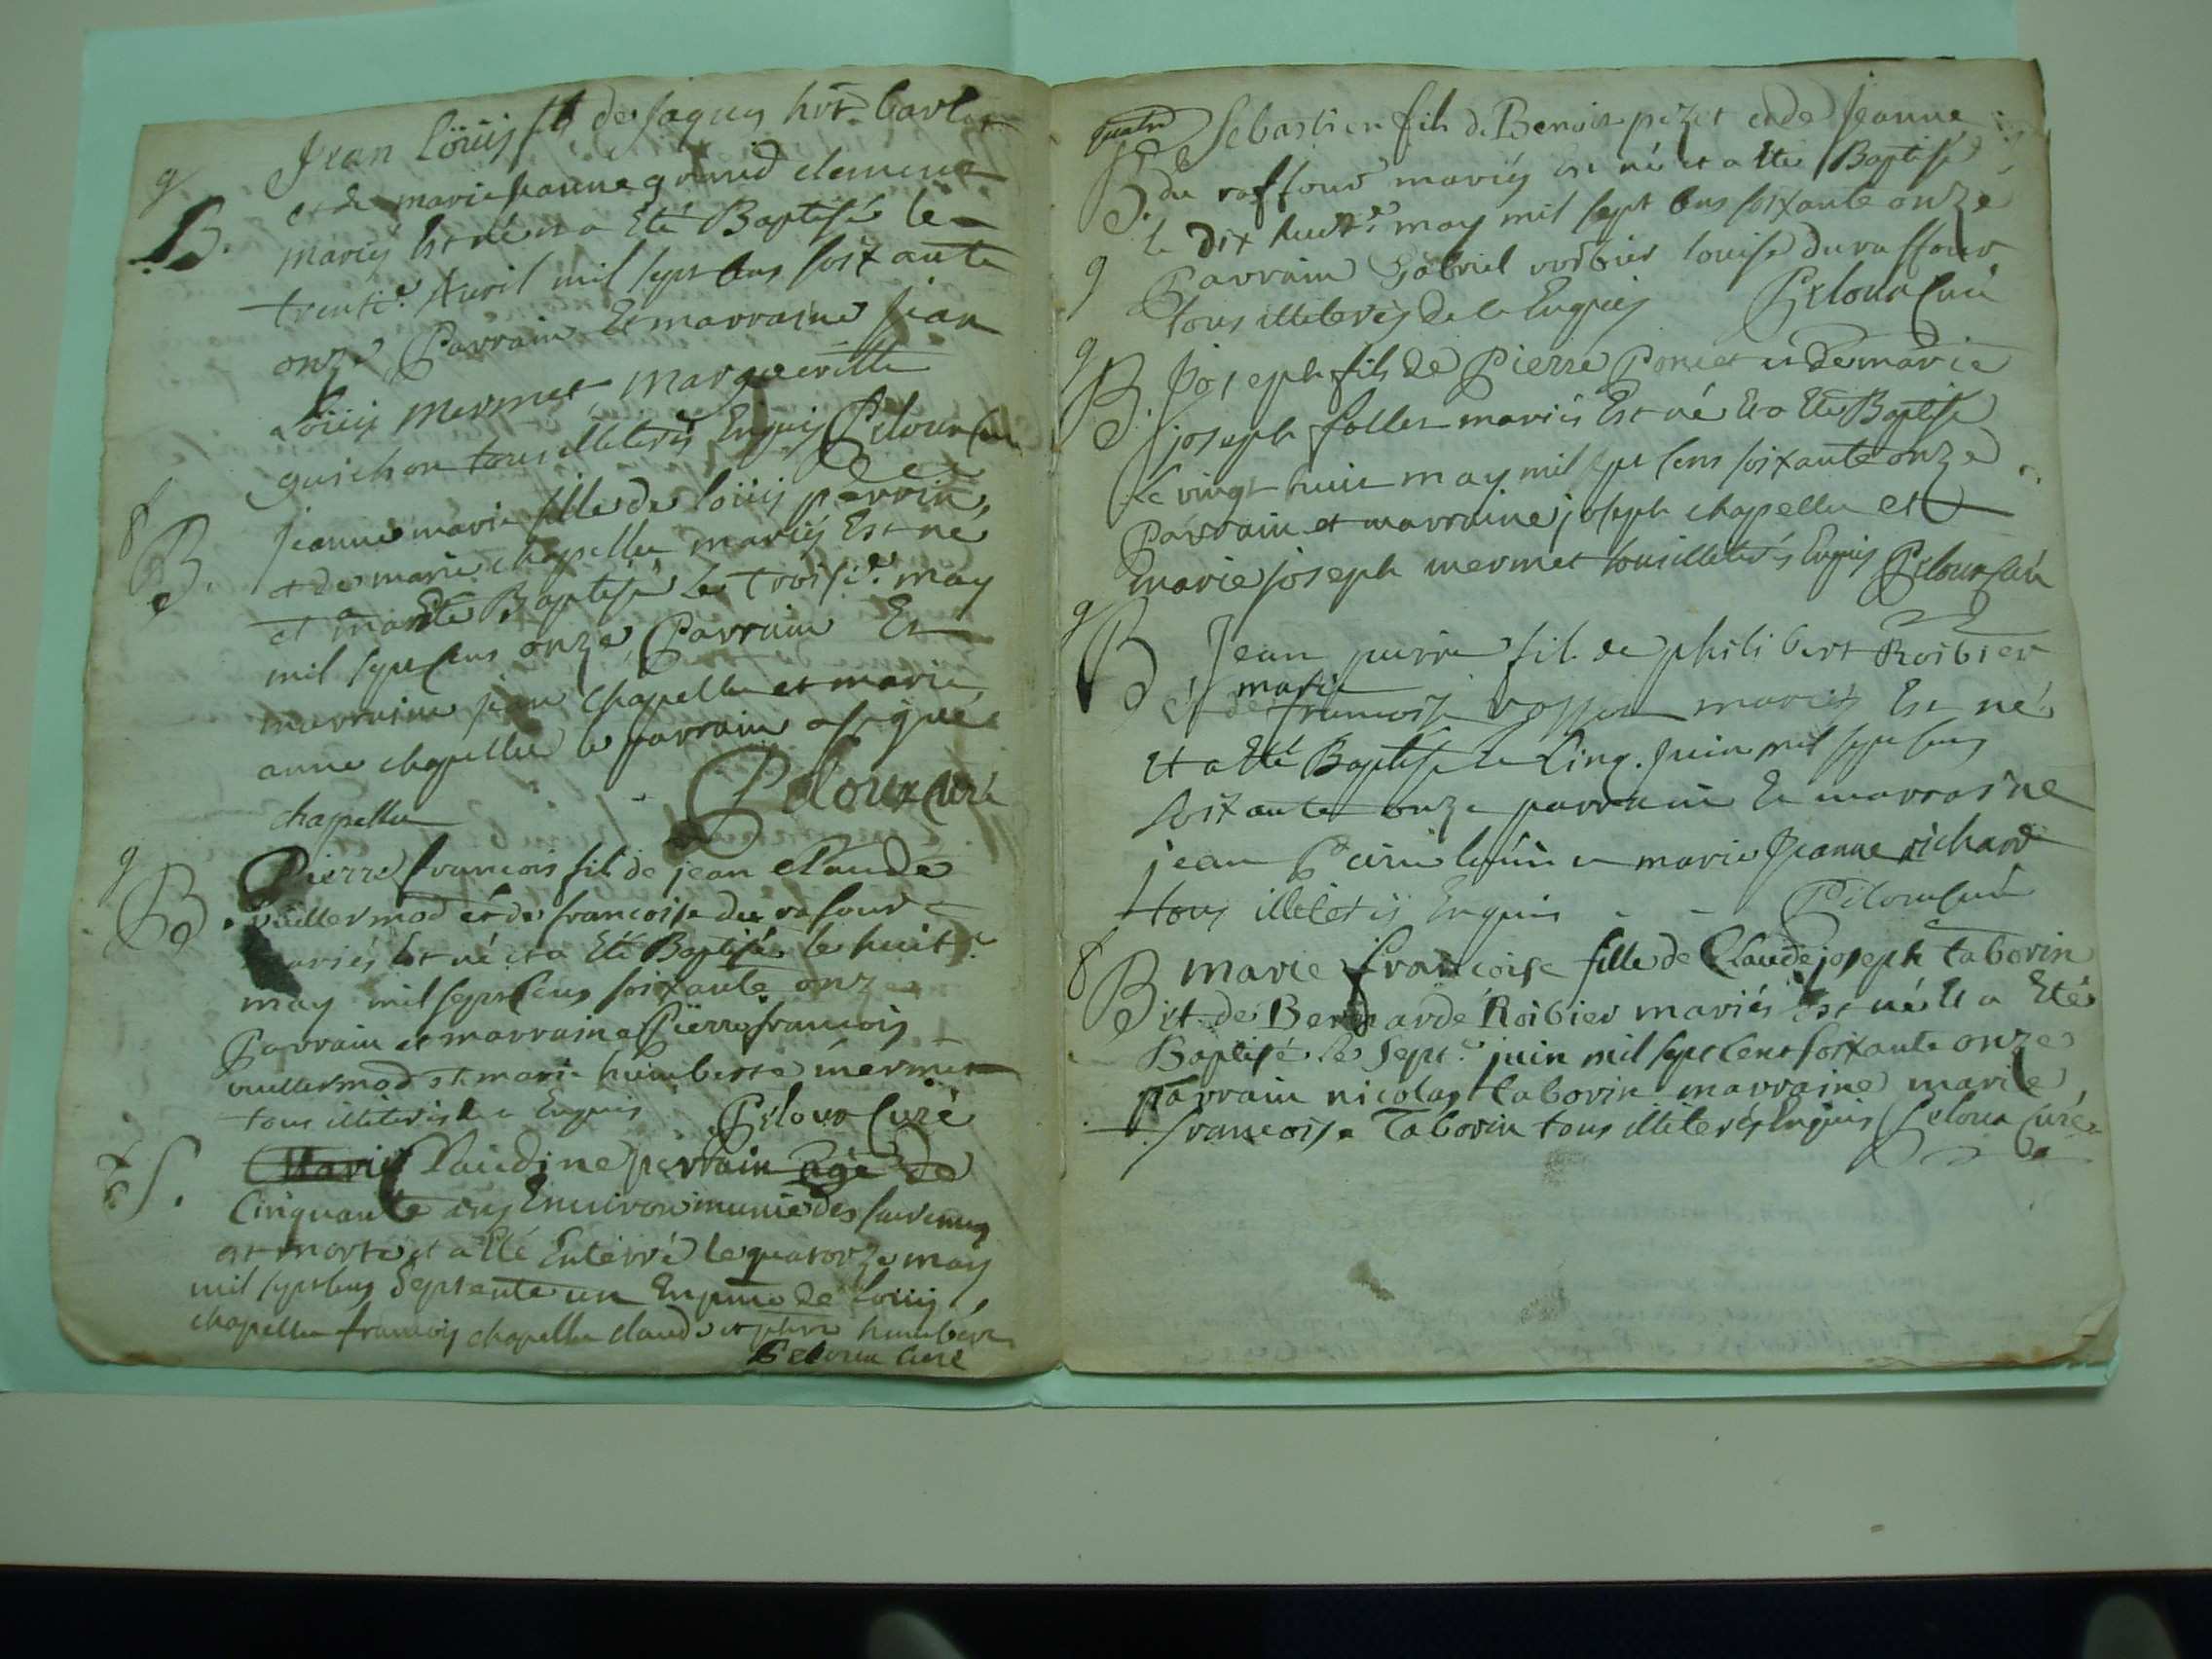 g
B.
Jean Loüis fils de Jaques hri barlet
et de marie jeanne grand clement
mariés Est né et a Eté Baptisé le
trente.e Avril mil sept Cens soixante
onze Parrain Et marraine Jean
Loüis mermet, margueritte
guichon tous illiterés Enquis Peloux Curé
f
B.
jeanne marie fille de loüis perrin
et de marie chapellu mariés Est né
et a Eté Baptisé le troisie.e may
mil sept Cens onze Parrain Et
marraine jean chapellu et marie
anne chapellu le parrain a signé
chapellu - Peloux Curé
g
B.
Pierre francois fils de jean Claude
vuillermod et de francoise du rafour
mariés Est né et a Eté Baptisé le huit.e
may mil sept Cens soixante onze
Parrain et marraine Pierre francois
vuillermod et marie humberte mermet
tous illiterés de Enquis Peloux Curé
f S.
Marie Claudine perrain agé de
Cinquante ans Environ munie des sacremens
est morte et a Eté Enterré le quatorze may
mil sept Cens Septente un En pnce de Loüis
chapellu francois chapellu claude et humbert
Peloux Curé
quatre
B.
g
Sebastien fils de Benoit pizet et de Jeanne
du raffour mariés Est né et a Eté Baptisé
le Dix huit.e may mil sept Cens soixante onze
Parrain Gabriel roibier louise du raffour
tous illiterés de ce Enquis Peloux Curé
g
B.
Joseph fils de Pierre Poncet et de marie
joseph follet mariés Est né Et a Eté Baptisé
le vingt huit may mil sept Cens soixante onze
Parrain et marraine joseph chapellu et
marie joseph mermet tous illiterés Enquis Peloux Curé
g
B
Jean pierre fils de philibert Roibier
marie
et de francoise rosset mariés Est né
et a Eté Baptisé le Cinq. juin mil sept Cens
soixante onze parrain Et marraine
jean Pierre et marie Jeanne richard
tous illiterés Enquis - - Peloux Curé
f
B
marie françoise fille de Claude joseph taborin
et de Bernarde Roibier mariés Est né Et a Eté
Baptisé le Sept.e juin mil sept Cent soixante onze
Parrain nicolas taborin marraine marie
francoise Taborin tous illiterés Enquis Peloux Curé